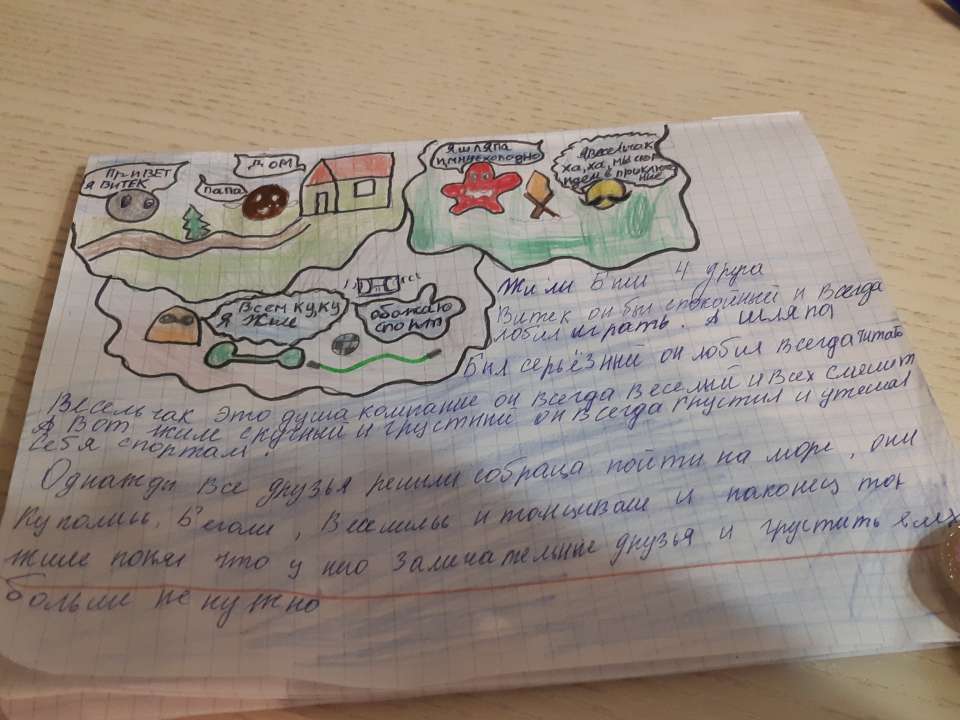 Привет
я Витек
Д.ОМ
папа
Я шляпа
и мне холодно
Я Весельчак
ха, ха, мы
идем в приклю
Всем ку,ку
я Жиле
обожаю
спорт
Жили Были 4 друга
Витек он был спокойный и всегда
любил играть. А шляпа
Был серьёзний он любил всегда читать
Весельчак это душа компание он всегда веселый и всех смешит
А вот жиле скучный и грустный он всегда грустил и утешал
себя спортам.
Однажди все друзья решили собраца пойти на море, они
купались, бегали, веселились и танцивали и наконец то
жиле понял что у него замичательние друзья и грустить
больше не нужно